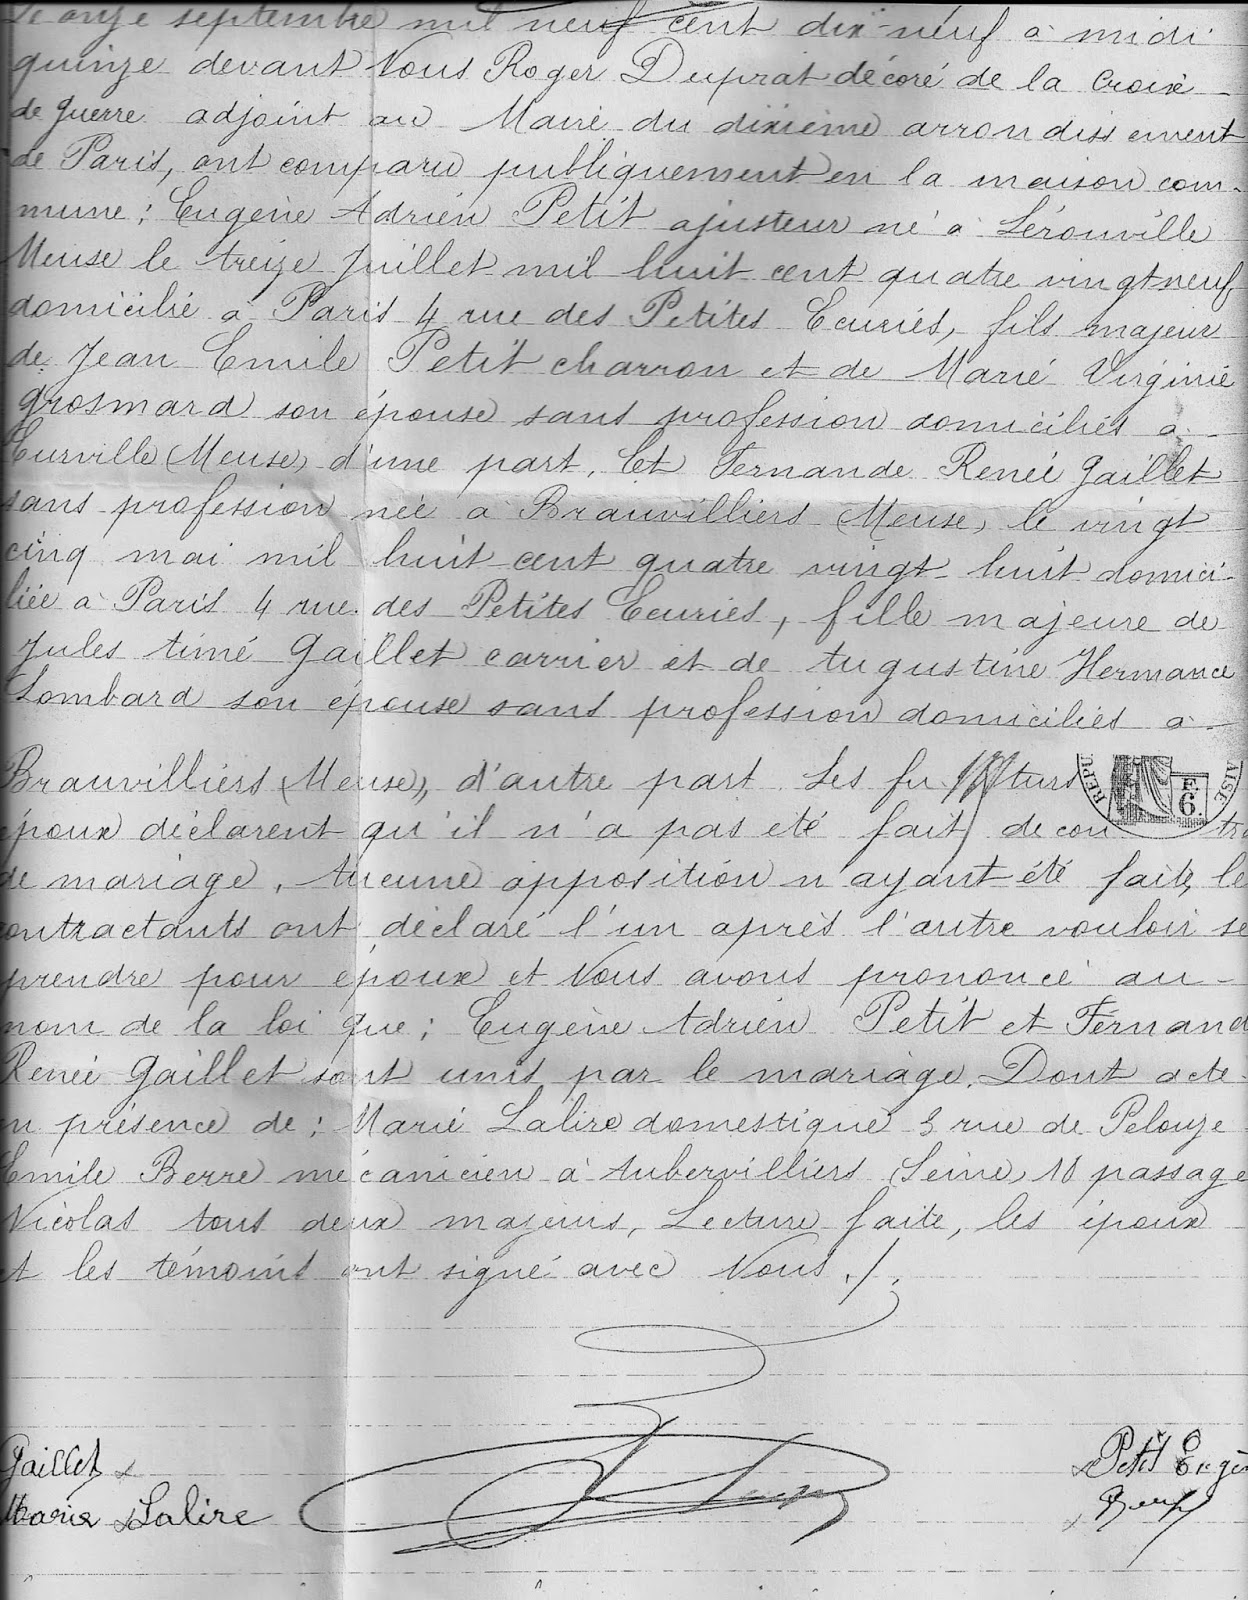 Le onze septembre mil neuf cent dix-neuf à midi
quinze devant Nous Roger Duprat décoré de la Croix
de guerre adjoint au Maire du dixième arrondissement
de Paris, ont comparu publiquement en la maison com-
mune : Eugène Adrien Petit ajusteur né à Lérouville
Meuse le treize Juillet mil huit cent quatre vingt neuf
domicilié à Paris 4 rue des Petites Ecuries, fils majeur
de Jean Emile Petit charron et de Marie Virginie
Grosmard son épouse sans profession domiciliés à
Eurville (Meuse) d'une part, Et Fernande Renée Gaillet
sans profession née à Brauvilliers (Meuse) le vingt
cinq mai mil huit cent quatre vingt-huit domici-
liée à Paris 4 rue des Petites Ecuries, fille majeure de
Jules Aimé Gaillet carrier et de Augustine Hermance
Lombard son épouse sans profession domiciliés à
Brauvilliers (Meuse), d'autre part Les fu turs
époux déclarent qu'il n'a pas été fait de con tra
de mariage. Aucune opposition n'ayant été faite, le
contractants ont déclaré l'un après l'autre vouloir se
prendre pour époux et Nous avons prononcé au
nom de la loi que ; Eugène Adrien Petit et Fernand
Renée Gaillet sont unis par le mariage. Dont acte
en présence de : Marie Lalire domestique 3 rue de Pelouze
Emile Berre mécanicien à Aubervilliers (Seine) 10 passage
Nicolas tous deux majeurs, Lecture faite, les époux
et les témoins ont signé avec Nous ./.
REPU AISE
F.
6.
Gaillet
Petit Eugè
Marie Lalire